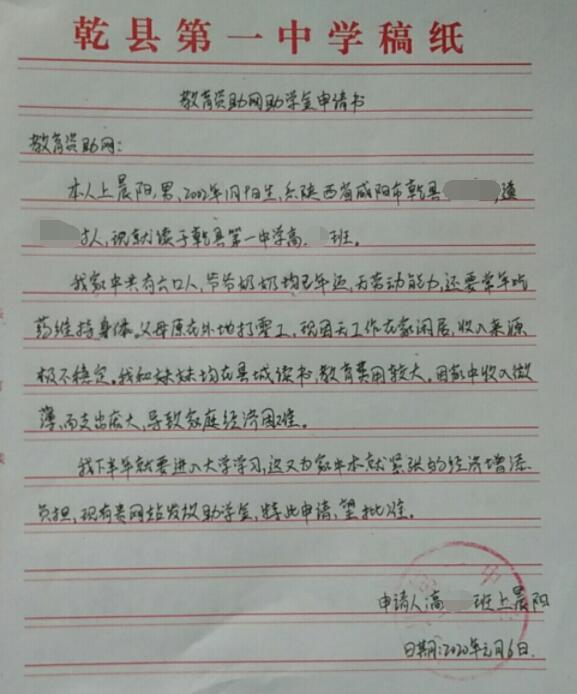 乾县第一中学稿纸
教育资助网助学金申请书
教育资助网:
本人上晨阳,男,2002年1月9日生,系陕西省咸阳市乾县
村人,现就读于乾县第一中学高 班。
我家中共有六口人,爷爷奶奶均已年迈,无劳动能力,还要常年吃
药维持身体。父母原在外地打零工,现因无工作在家闲居,收入来源
极不稳定。我和妹妹均在县城读书,教育费用较大。因家中收入微
薄,而支出庞大,导致家庭经济困难。
我下半年就要进入大学学习,这又为家中本就紧张的经济增添
负担,现有贵网站发放助学金,特此申请,望批准。
申请人:高 班上晨阳
日期:2020年元月6日